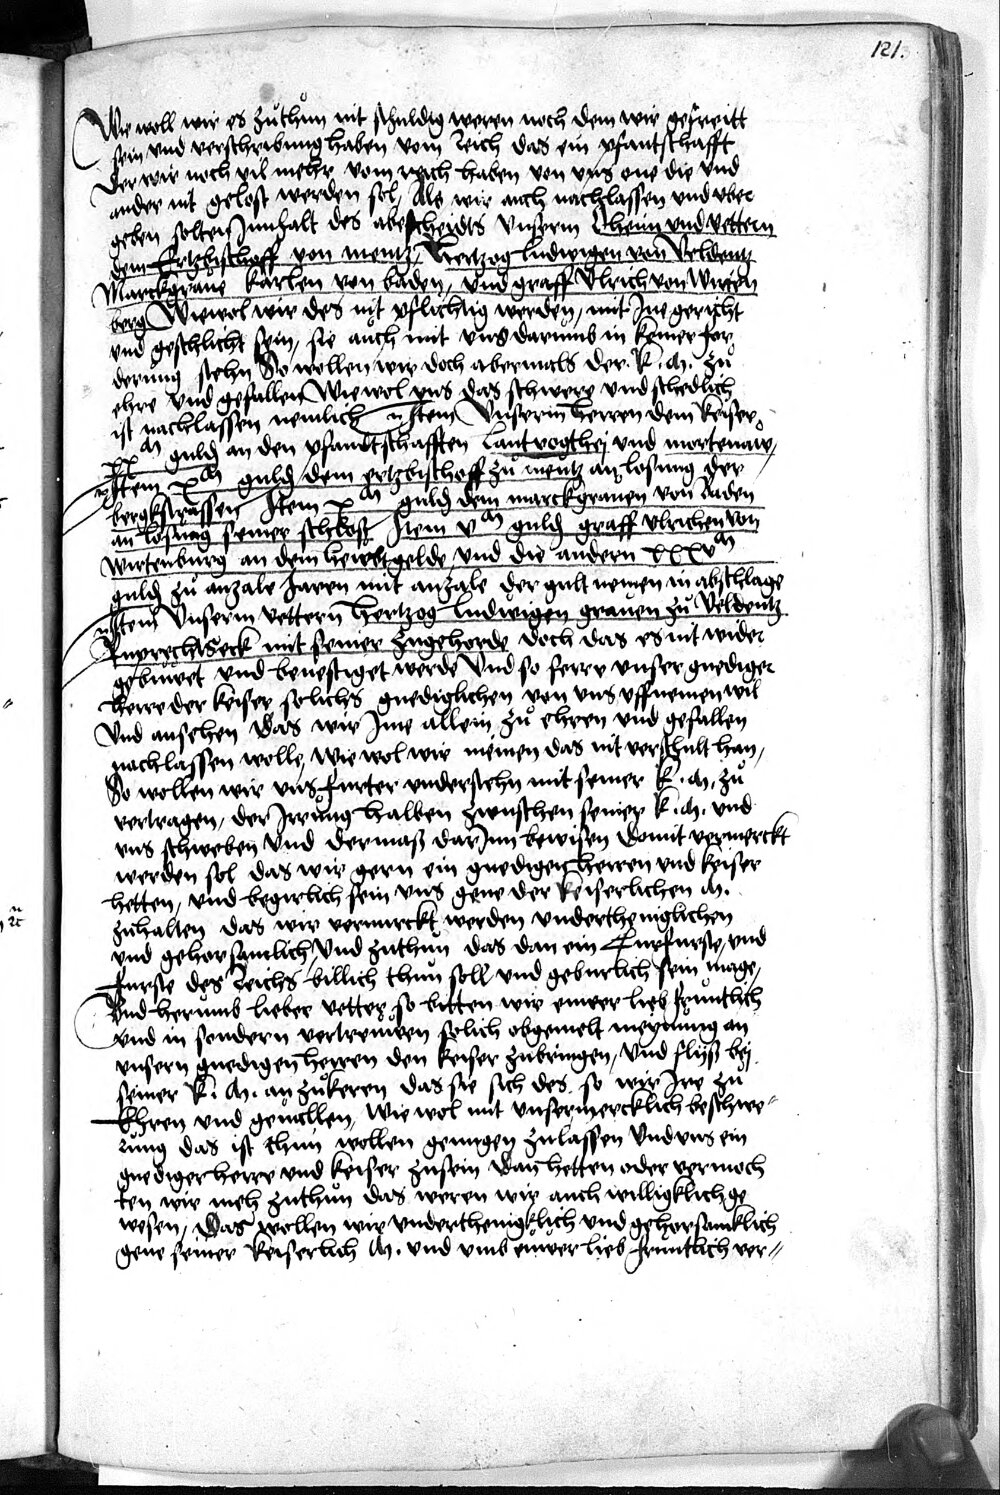 121.
Wie woll wir es zuthun nit schuldig weren noch dem wir gefreitt
sein vnd verschribung haben vom Reich das ein pfantschafft
der wir noch vil mehr vom reich haben von vns one die vnd
ander nit gelost werden sol, Als wir auch nachlassen vnd vber
geben solten Innhalt des abescheidts vnserm Oheim vnd vettern
dem Ertzbischoff von mentz, Hertzog Ludwigen von Veldentz
Marckgraue Karlen von baden, vnd graff Vlrich von Wirten
berg Wiewol wir des nit pflichtig werden, mit Ine gericht
vnd geschlicht sein, sie auch mit vns darumb in keiner for
derung stehn So wollen wir doch abermals der. K. M. zu
ehre vnd gefallen Wiewol vns das schwere vnd schedlich
ist nachlassen nemlich Item Vnserm herren dem keiser
xx m guld an den pfandtschafften Lantvogthej vnd mortenaw,
Item x m guld dem ertzbischoff zu mentz an losung der
bergkstrassen Item x m guld dem marckgrauen von Baden
an losung seiner schlost Item v m guld graff vlrichen von
Wirtenburg an dem heiratgelde vnd die andern xxxv m
guld zu anzale Jaren mit anzale der gult nemen in abschlage
Item Vnserm vettern Hertzog Ludwigen grauen zu Veldentz
Ruprechtseck mit seiner zugehorde doch das es nit wider
gebuwet vnd beuestiget werde Vnd so ferre vnser gnediger
herre der keiser solichs gnediglichen von vns vffnemen wil
Vnd ansehen das wir Ime allein zu ehren vnd gefallen
nachlassen wolle, wie wol wir meinen das nit verschult han,
So wollen wir vns furter vnderstehn mit seiner K. M. zu
vertragen, der Irrung halben zwuschen seiner K. M. vnd
vns schweben Vnd dermaß dar Inn bewisen domit vermerckt
werden sol das wir gern ein gnedigen herren vnd keiser
hetten, vnd begirlich sein vns gene der keiserlichen M.
zuhalten das wir vermerckt werden vndertheniglichen
vnd gehorsamlich, Vnd zuthun das dan ein Curfurste, vnd
furste des Reichs billich thun soll vnd geburlich sein mage,
Vnd herumb lieber vetter so bitten wir euwer lieb fruntlich
vnd in sondern vertreuwen solich obgemelt meynung an
vnsern gnedigen herren den keiser zubringen, vnd flyß bej
seiner K. M. an zukeren das sie sich des so wir Ire zu
Ehren vnd geuallen, Wie wol mit vnser mercklich beschwe-
rung das ist thun wollen genugen zulassen Vnd vns ein
gnediger herre vnd keiser zusein Dan hetten oder vermoch
ten wir meh zuthun das weren wir auch willigklich ge
wesen, Das wollen wir vnderthenigklich vnd gehorsamklich
gene seiner keiserlich M. vnd vmb euwer lieb fruntlich ver-